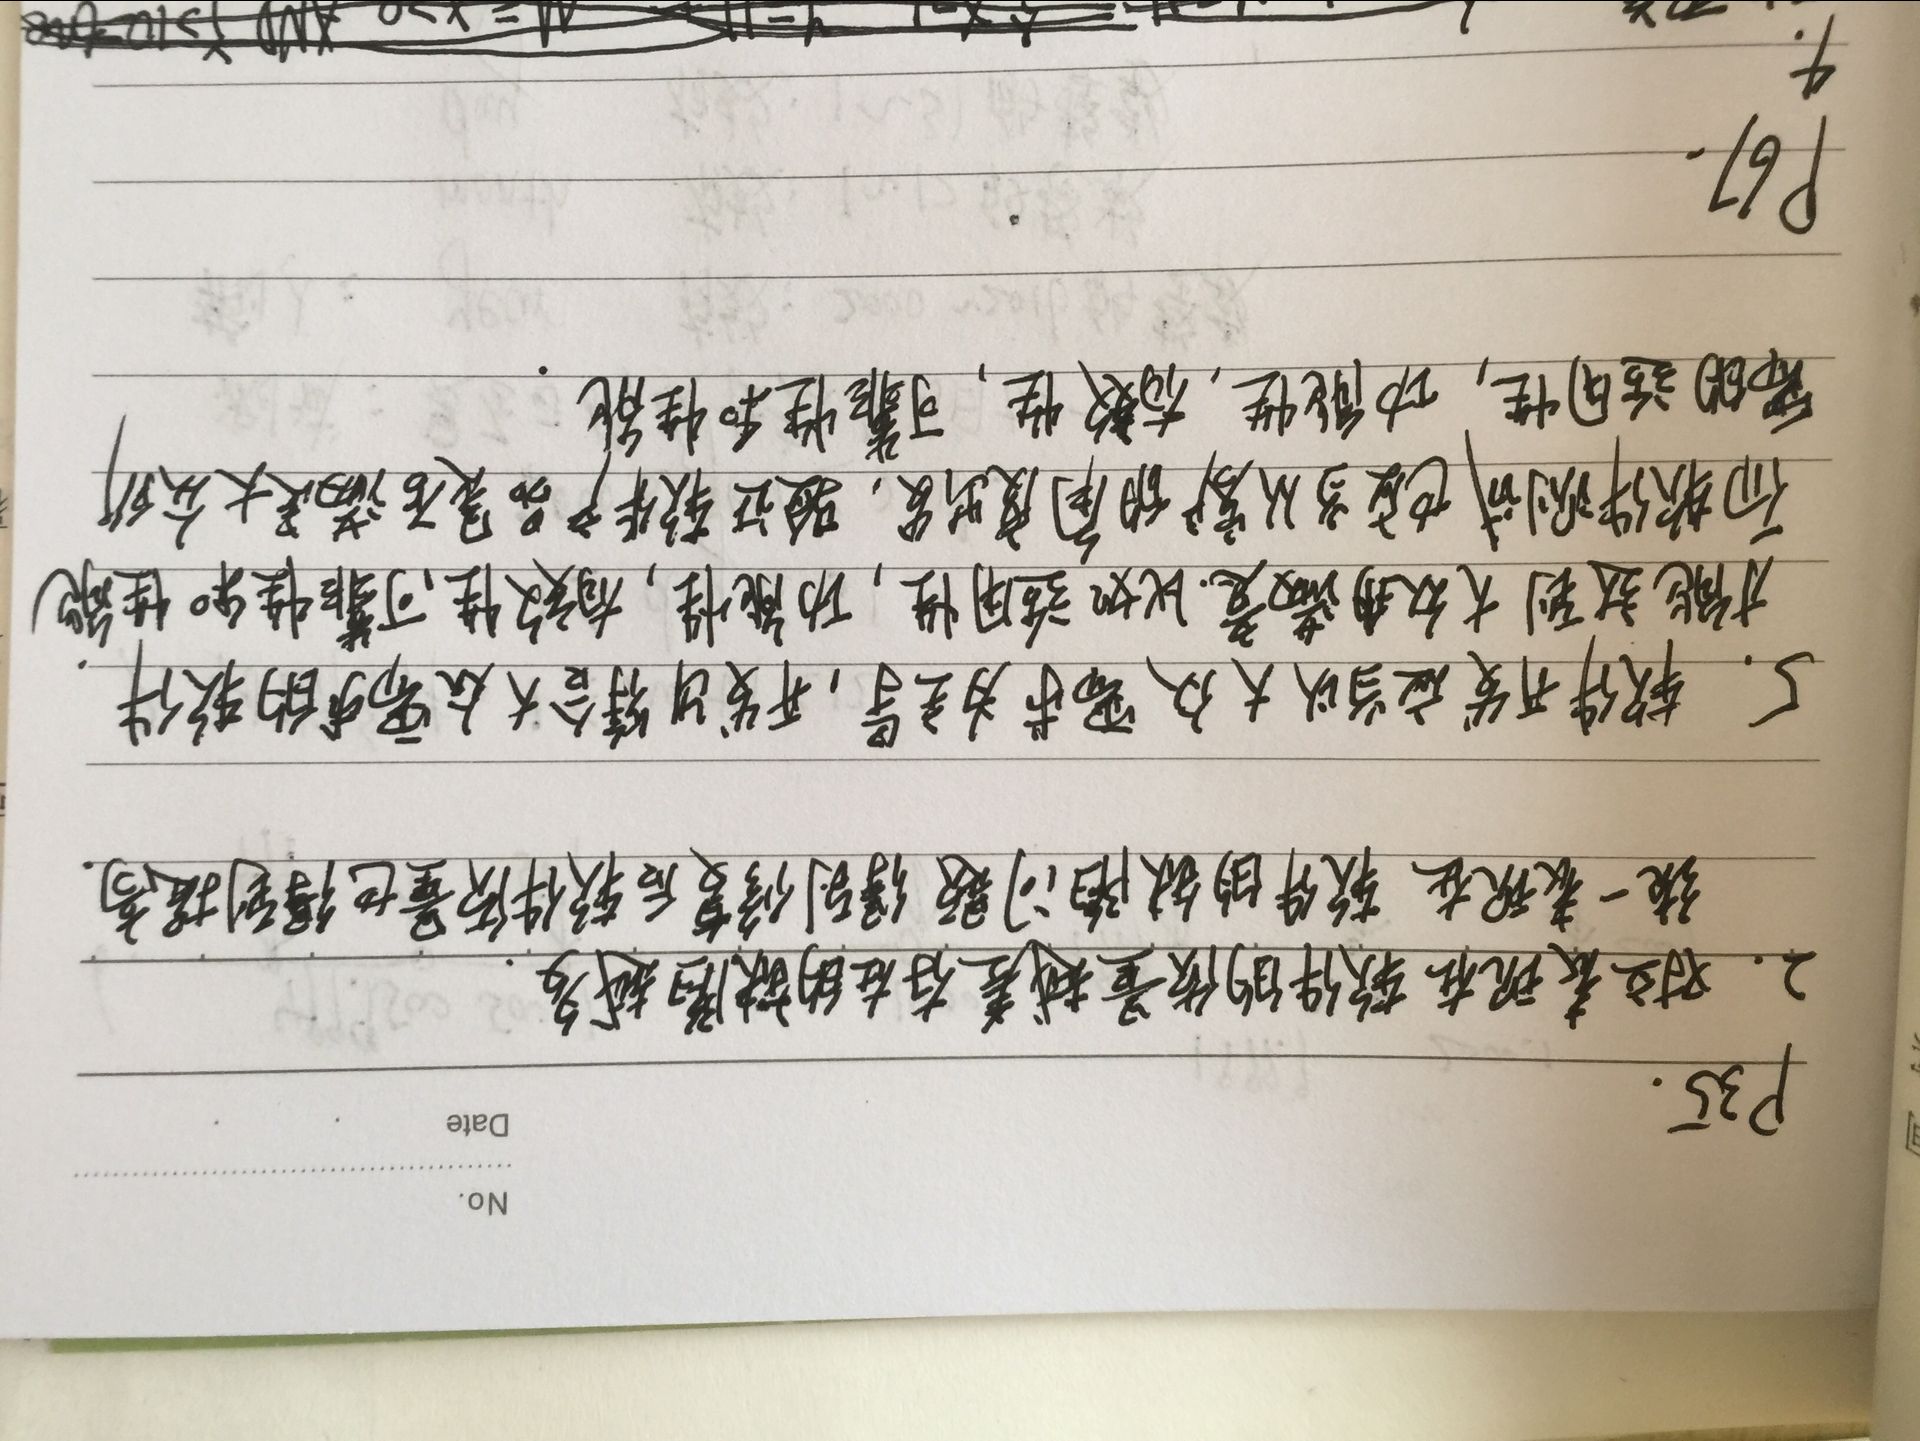 No.
Date
P35.
2. 对立表现在软件的质量越差存在的缺陷越多.
统一表现在 软件的缺陷问题得到修复后软件质量也得到提高.
5. 软件开发应当以大众需求为主导,开发出符合大众需求的软件.
才能达到大众满意.比如适用性,功能性,有效性,可靠性和性能
而软件测试也应当从客户的角度出发,验证软件产品是否满足大众所
需的适用性,功能性,有效性,可靠性和性能.
P67.
4.
M = X>0 AND Y>10